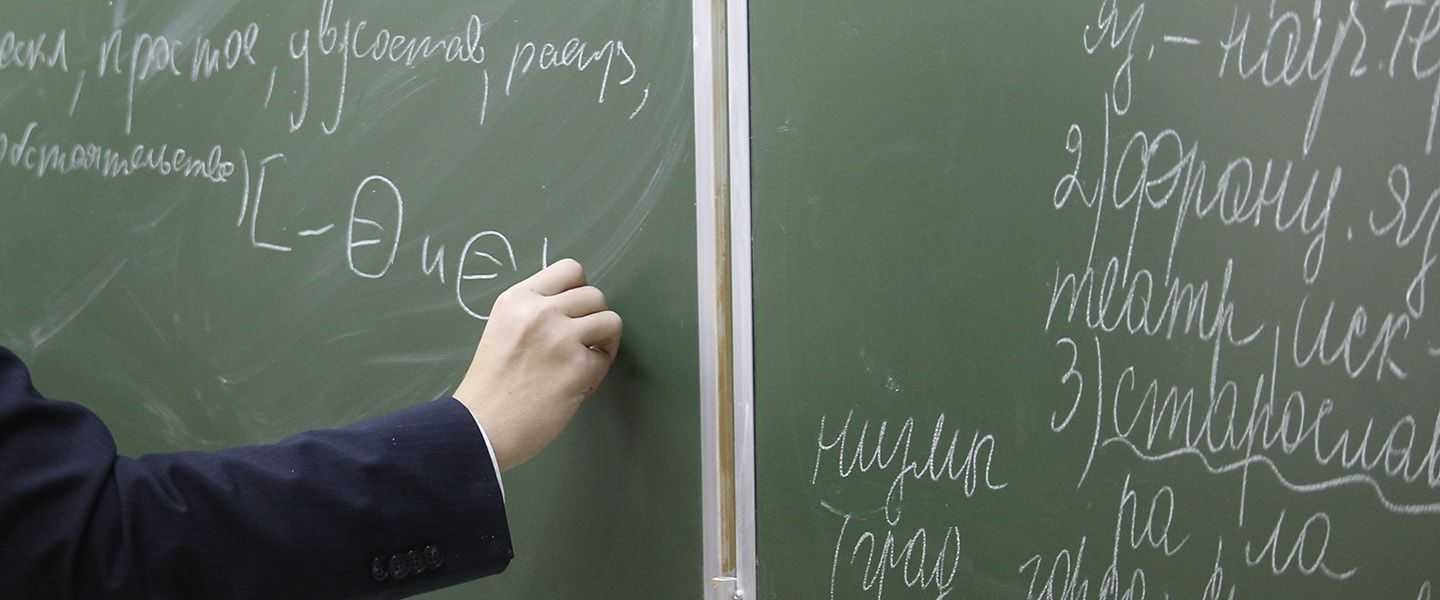 скл, простое, двусостав, распр,
обстоятельство) [ - О и О
яз. - науч. те
2) франц. яз
театр, иск -
3) старослав
ра ла
низмы
град